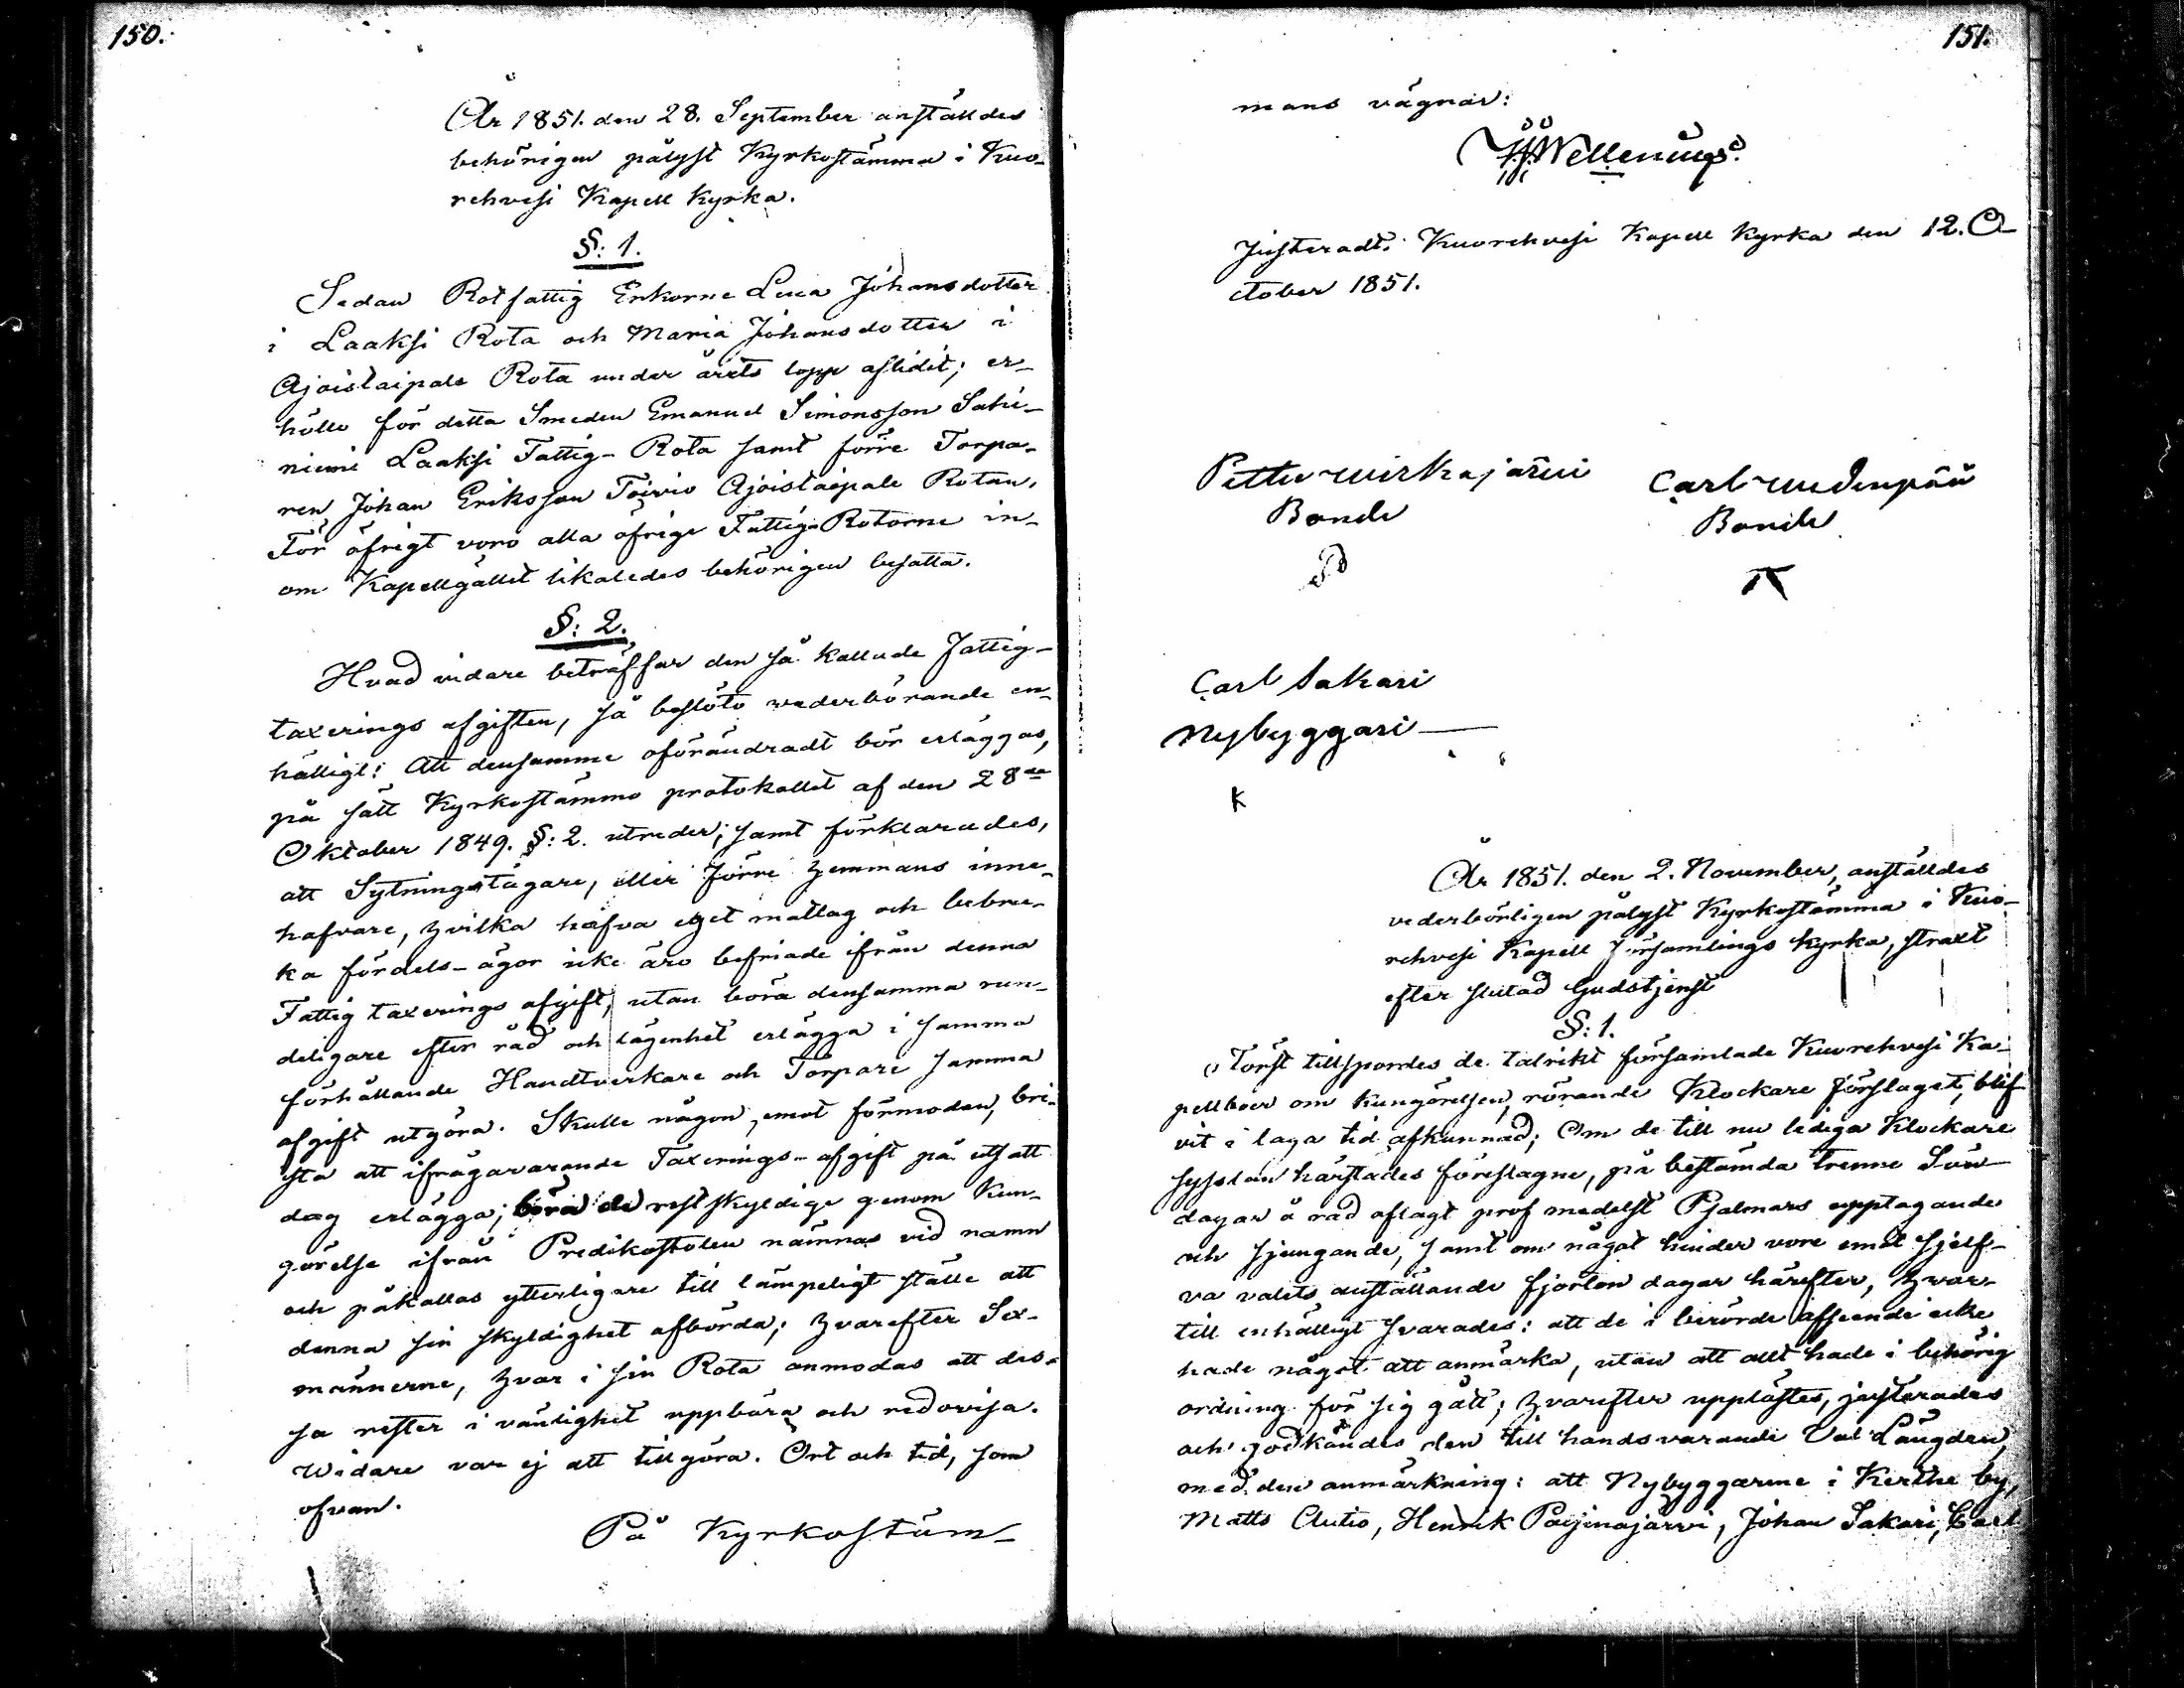 150.
År 1851. den 28. September anställdes
behörigen pålyst Kyrkostämma i Kuo-
rehvesi Kapell Kyrka.
§: 1.
Sedan Rotfattig Enkorne Lena Johansdotter
i Laaksi Rota och Maria Johansdotter i
Ajoistaipale Rota under årets lopp aflidit; er-
höllo för detta Smeden Emanuel Simonsson Sahi-
niemi Laaksi Fattig-Rota samt förre Torpa-
ren Johan Eriksson Toivio Ajoistaipale Rotan.
För öfrigt voro alla öfrige Fattig-Rotorne in-
om Kapellgället likaledes behörigen besatta.
§: 2.
Hvad vidare beträffar den så kallade Fattig-
taxerings afgiften, så beslöto vederbörande en-
hälligt: Att densamme oförändradt bör erläggas,
på sätt Kyrkostämmo protokollet af den 28de
Oktober 1849. §: 2. utreder; samt förklarades,
att Sytningstagare, eller förre Hemmans inne-
hafvare, hvilka hafva eget matlag och bebru-
ka fördels-ägor icke äro befriade ifrån denna
Fattig taxerings afgift, utan böra densamma run-
deligare efter råd och lägenhet erlägga i samma
förhållande Handtverkare och Torpare samma
afgift utgöra. Skulle någon, emot förmodan, bri-
sta att ifrågavarande Taxerings-afgift på utsatt
dag erlägga; böra de restskyldige genom Kun-
görelse ifrån Predikostolen nämnas vid namn
och påkallas ytterligare till lämpeligt ställe att
denna sin skyldighet afbörda; hvarefter Sex-
männerne, hvar i sin Rota anmodas att des-
sa rester i vänlighet uppbära och redovisa.
Widare var ej att tillgöra. Ort och tid, som
ofvan.
På Kyrkostäm-
151.
mans vägnar:
Wellenius.
Justeradt. Kuorehvesi Kapell Kyrka den 12. O-
ctober 1851.
Petter Wirkajärvi
Bonde
Carl Uudenpää
Bonde
Carl Sakari
Nybyggari
K
År 1851. den 2. November, anställdes
vederbörligen pålyst Kyrkostämma i Kuo-
rehvesi Kapell Församlings kyrka, straxt
efter slutad Gudstjenst
§: 1.
Först tillspordes de talrikt församlade Kuorehvesi Ka-
pellboer om kungörelsen, rörande Klockare förslaget, blif-
vit i laga tid afkunnad; Om de till nu lediga Klockare
sysslan härstädes föreslagne, på bestämda trenne Sön-
dagar å rad aflagt prof medelst Psalmars upptagande
och sjungande, samt om något hinder vore emot sjelf-
va valets anställande fjorton dagar härefter, hvar-
till enhälligt svarades: att de i berörde afseende icke
hade något att anmärka, utan att allt hade i behörig
ordning för sig gått; hvarefter upplästes, justerades
och godkändes den till hands varande Val Längden,
med den anmärkning: att Nybyggarne i Kerthe by,
Matts Autio, Henrik Paijinajärvi, Johan Sakari, Carl